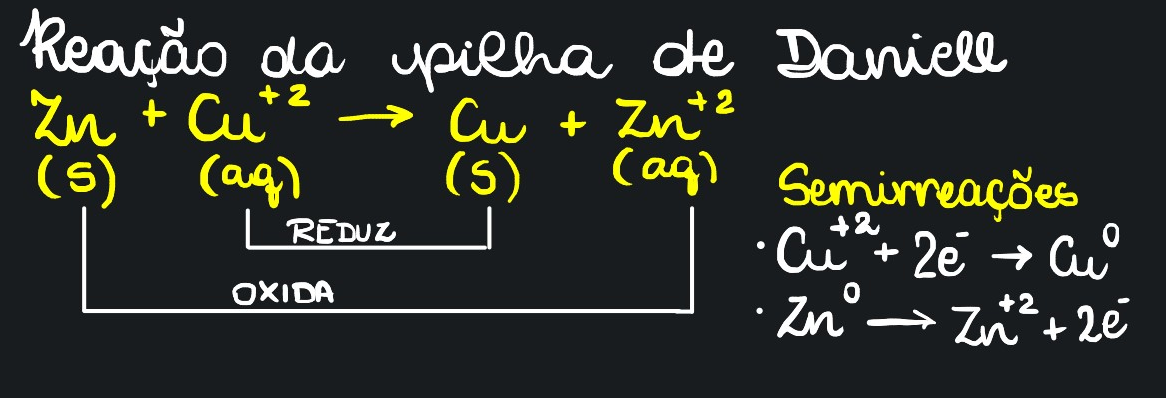 Reação da pilha de Daniell
Zn + Cu⁺² → Cu + Zn⁺²
(s) (aq) (s) (aq)
REDUZ
OXIDA
Semirreações
· Cu⁺² + 2e⁻ → Cu⁰
· Zn⁰ → Zn⁺² + 2e⁻